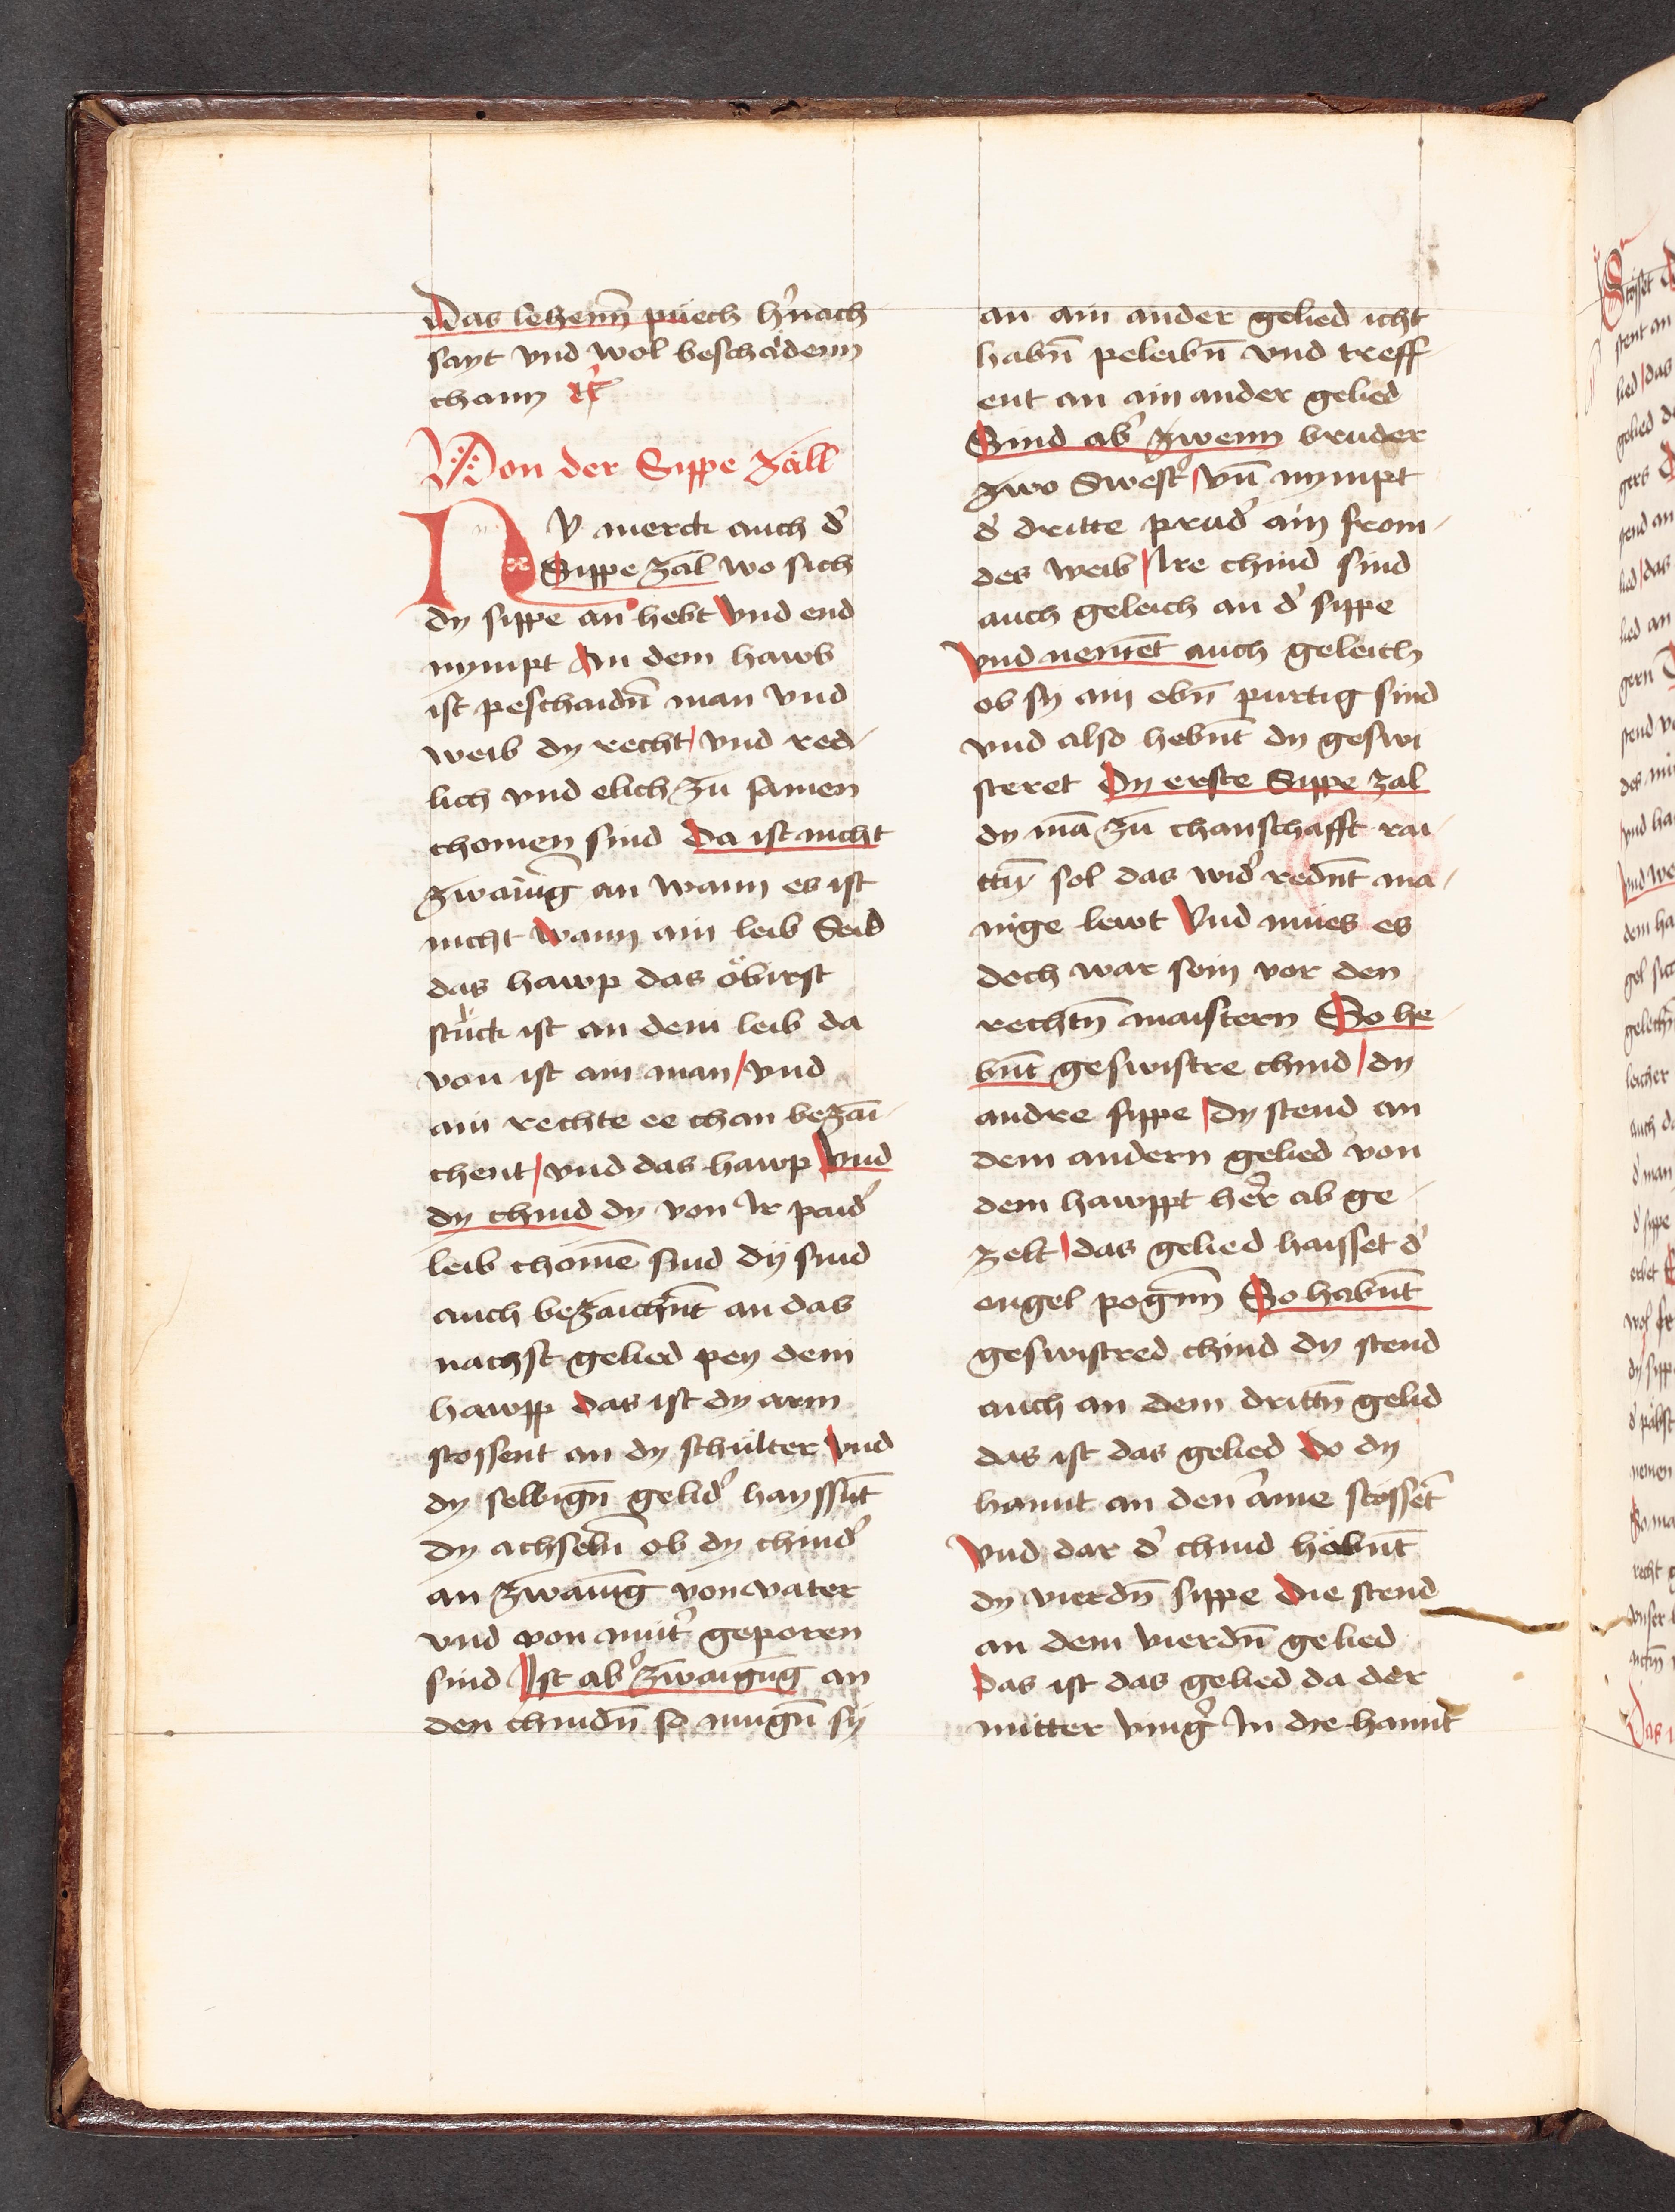 Das lehenn̄ puech hˀnach
sayt vnd wol beschaͤdenn
chann ꝛcˀ
Von der Sippe zall
NV merck auch dˀ
Sippe zal wo sich
dy sippe an hebt vnd end
nympt An dem hawb
ist peschaidn̄ man vnd
weib dy recht / vnd red
lich vnd elich zu samen
chomen sind Da ist nicht
an wann es ist
nicht wann ain leib Seid
das hawp das öbirst
stuck ist an dem leib da
von ist ain man / vnd
ain rechte ee chan bezai
chent / vnd das hawp Vnd
dy chind dy von Ir paidˀ
leib chomē sind dÿ sind
auch bezaichn̄t an das
nachst gelied pey dem
hawpp das ist dy arm
stossent an dy schulter vnd
dy selbign̄ gelidˀ hayssn̄t
dy achseln̄ ob dy chindˀ
an zwaiūg von vater
vnd von mutˀ geporen
sind Ist abˀ zwaigūg an
den chindn̄ so mugn̄ sy
an ain ander gelied icht
habn̄ peleibn̄ vnd treff
ent an ain ander gelied
Sind abˀ zwenn bruder
zwo Swestˀ / vn̄ nympt
dˀ dritte prudˀ ain from
des weib / Ire chind sind
auch geleich an dˀ sippe
vnd nemēt auch geleich
ob sy ain ebn̄ purtig sind
vnd also hebn̄t dy geswi
steret Dy erste Sippe zal
dy mā zu chanschafft rai
ttn̄ sol das widˀ redn̄t ma
nige lewt Vnd mues es
doch war sein vor den
rechtn̄ maistern So he
bn̄t geswistre chind / dy
andre sippe / dy stend an
dem andern gelied von
dem hawppt herˀ ab ge
zelt / das gelied haisset dˀ
engel pogn̄n So habn̄t
geswistred chind dy stend
auch an dem drittn̄ gelid
das ist das gelied do dy
hannt an den arme stossēt
vnd dar dˀ chind höbn̄t
dy vierdn̄ sippe Die stend
an dem vierdn̄ gelied
Das ist das gelied da der
mitter vingˀ In die hannt